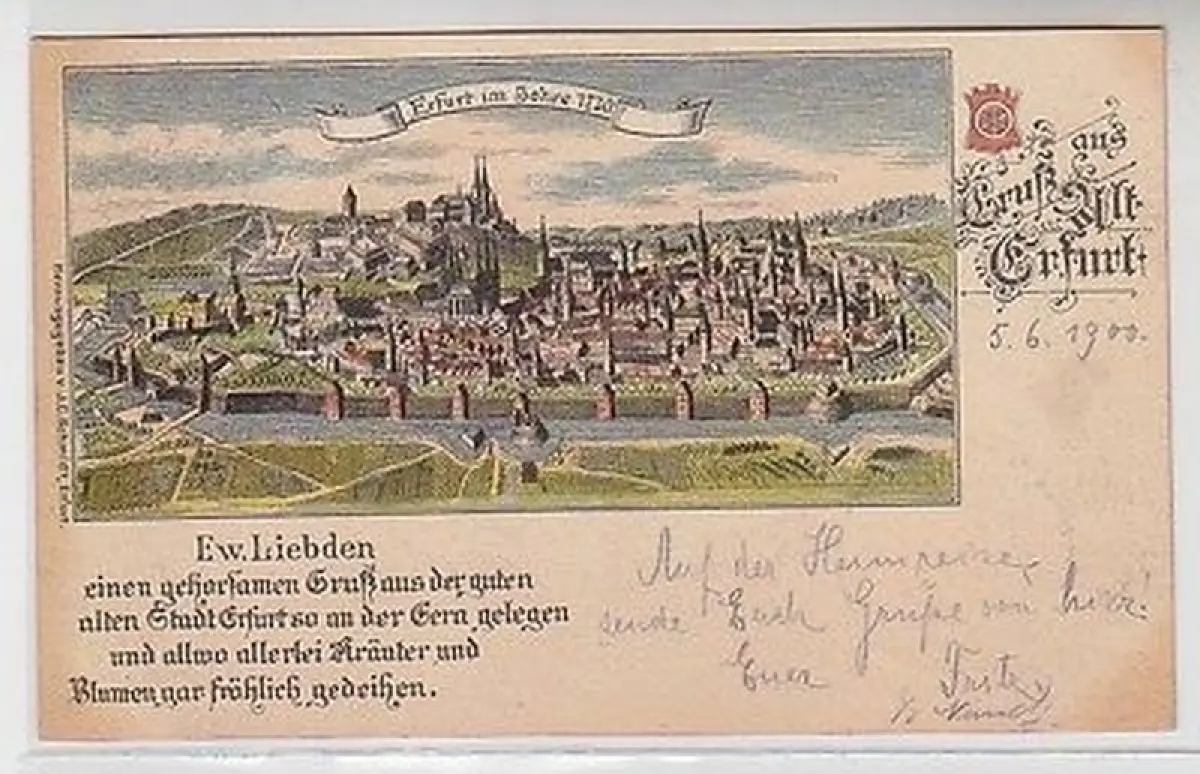 Erfurt im Jahre 1720
Gruß aus
Alt-
Erfurt.
5. 6. 1900.
Ew. Liebden
einen gehorsamen Gruß aus der guten
alten Stadt Erfurt so an der Gera gelegen
und allwo allerlei Kräuter und
Blumen gar fröhlich gedeihen.
Auf der Heimreise
sende Euch Grüße von hier!
Euer